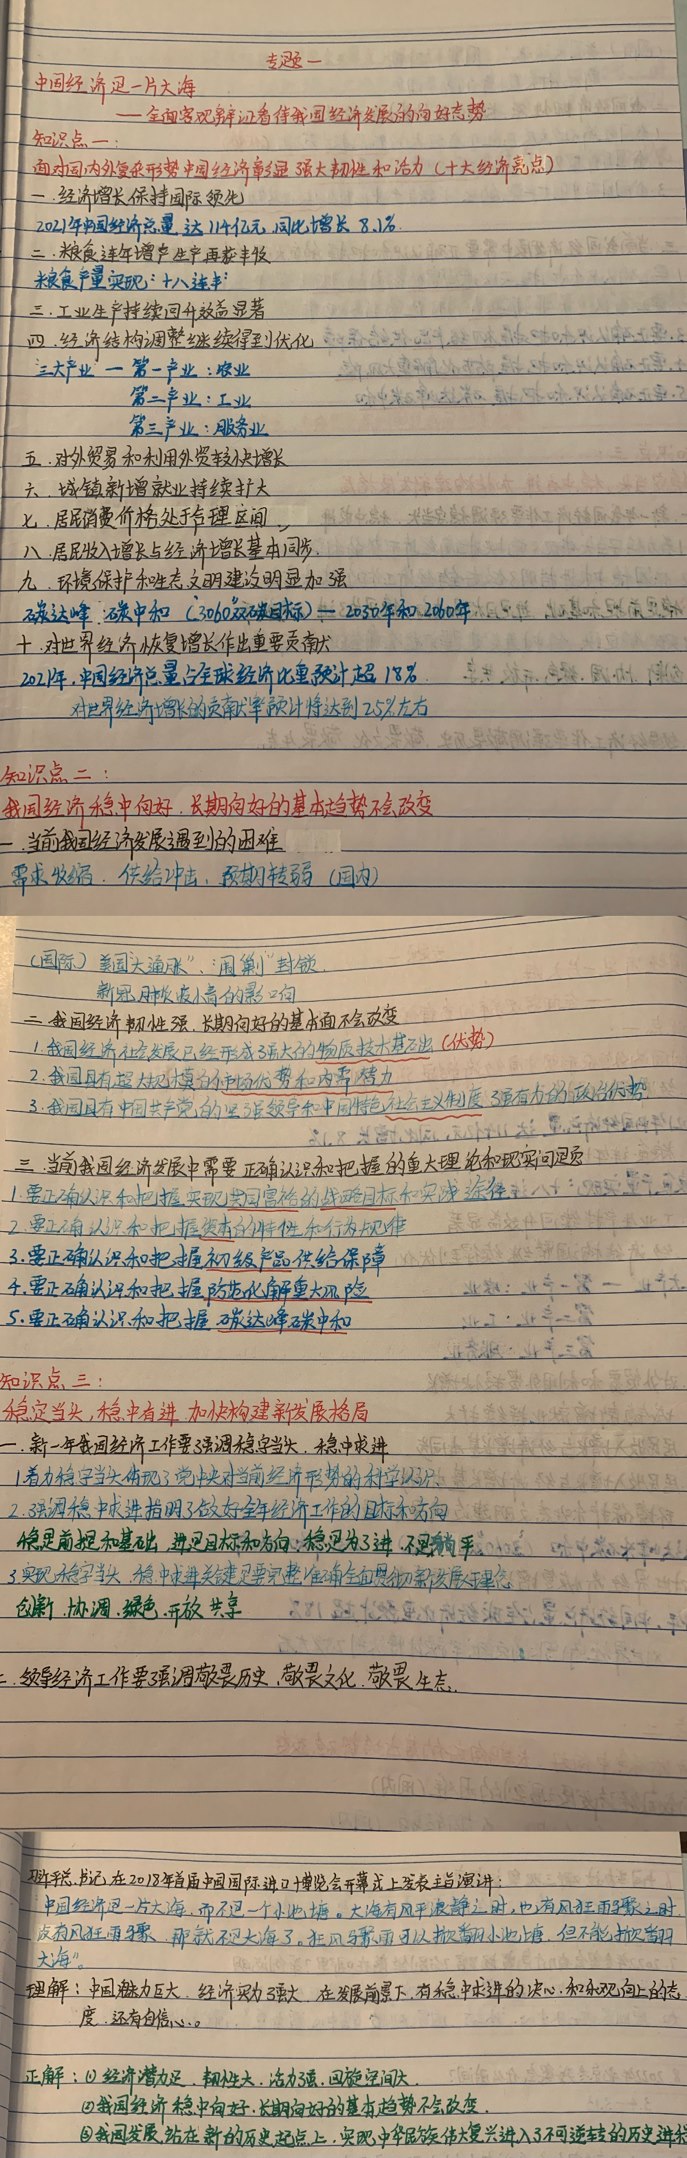 专题一
中国经济是一片大海
——全面客观辩证看待我国经济发展的向好态势
知识点一：
面对国内外复杂形势中国经济彰显强大韧性和活力（十大经济亮点）
一.经济增长保持国际领先
2021年中国经济总量达114亿元,同比增长8.1%
二.粮食连年增产生产再获丰收
粮食产量实现：十八连丰
三.工业生产持续回升效益显著
四.经济结构调整继续得到优化
三大产业 — 第一产业：农业
第二产业：工业
第三产业：服务业
五.对外贸易和利用外资较快增长
六.城镇新增就业持续扩大
七.居民消费价格处于合理区间
八.居民收入增长与经济增长基本同步.
九.环境保护和生态文明建设明显加强
碳达峰.碳中和（"3060"双碳目标）— 2030年和2060年
十.对世界经济恢复增长作出重要贡献
2021年,中国经济总量占全球经济比重预计超18%
对世界经济增长的贡献率预计将达到25%左右
知识点二：
我国经济稳中向好.长期向好的基本趋势不会改变
一.当前我国经济发展遇到的困难
需求收缩.供给冲击.预期转弱（国内）
（国际）美国"大通胀"、"围剿"封锁.
新冠肺炎疫情的影响
二.我国经济韧性强.长期向好的基本面不会改变
1.我国经济社会发展已经形成强大的物质技术基础（优势）
2.我国具有超大规模的市场优势和内需潜力
3.我国具有中国共产党的坚强领导和中国特色社会主义制度强有力的政治优势
三.当前我国经济发展中需要正确认识和把握的重大理论和现实问题
1.要正确认识和把握实现共同富裕的战略目标和实践途径
2.要正确认识和把握资本的特性和行为规律
3.要正确认识和把握初级产品供给保障
4.要正确认识和把握防范化解重大风险
5.要正确认识和把握碳达峰碳中和
知识点三：
稳定当头,稳中有进 加快构建新发展格局
一.新一年我国经济工作要强调稳字当头.稳中求进
1.着力稳字当头体现了党中央对当前经济形势的科学认识.
2.强调稳中求进指明了做好全年经济工作的目标和方向
稳是前提和基础.进是目标和方向；稳是为了进.不是躺平
3.实现稳字当头.稳中求进关键是要完整准确全面贯彻新发展理念
创新.协调.绿色.开放.共享
二.领导经济工作要强调敬畏历史.敬畏文化.敬畏生态.
习近平总书记在2018年首届中国国际进口博览会开幕式上发表主旨演讲：
中国经济是一片大海.而不是一个小池塘。大海有风平浪静之时,也有风狂雨骤之时.
没有风狂雨骤.那就不是大海了。狂风骤雨可以掀翻小池塘,但不能掀翻
大海"。
理解：中国魅力巨大.经济实力强大.在发展前景下,有稳中求进的决心.和积极向上的态
度.还有自信心。
正解：①经济潜力足.韧性大.活力强.回旋空间大.
②我国经济稳中向好.长期向好的基本趋势不会改变.
③我国发展站在新的历史起点上,实现中华民族伟大复兴进入了不可逆转的历史进程